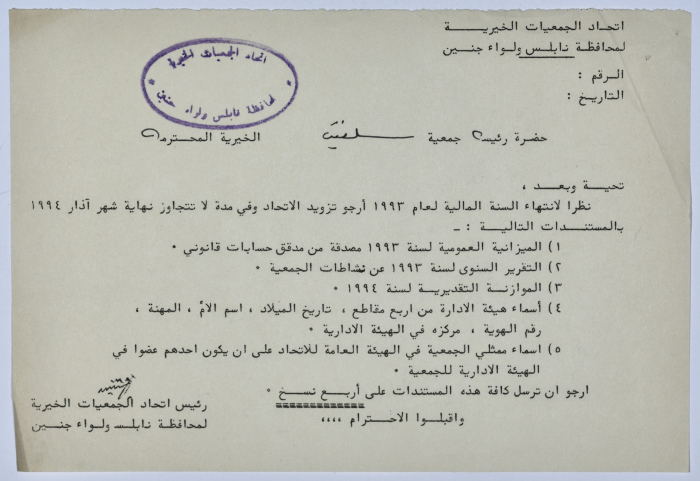 اتحاد الجمعيات الخيرية
لمحافظة نابلس ولواء جنين
الرقم :
التاريخ :
اتحاد الجمعيات الخيرية
لمحافظة نابلس ولواء جنين
حضرة رئيس جمعية سلفيت الخيرية المحترمة
تحية وبعد ،
نظرا لانتهاء السنة المالية لعام ١٩٩٣ أرجو تزويد الاتحاد وفي مدة لا تتجاوز نهاية شهر آذار ١٩٩٤
بالمستندات التالية : ـ
١) الميزانية العمومية لسنة ١٩٩٣ مصدقة من مدقق حسابات قانوني •
٢) التقرير السنوى لسنة ١٩٩٣ عن نشاطات الجمعية •
٣) الموازنة التقديرية لسنة ١٩٩٤ •
٤) أسماء هيئة الادارة من اربع مقاطع ، تاريخ الميلاد ، اسم الام ، المهنة ،
رقم الهوية ، مركزه في الهيئة الادارية •
٥) اسماء ممثلي الجمعية في الهيئة العامة للاتحاد على ان يكون احدهم عضوا في
الهيئة الادارية للجمعية •
ارجو ان ترسل كافة هذه المستندات على أربع نسخ •
واقبلوا الاحترام ،،،،
رئيس اتحاد الجمعيات الخيرية
لمحافظة نابلس ولواء جنين